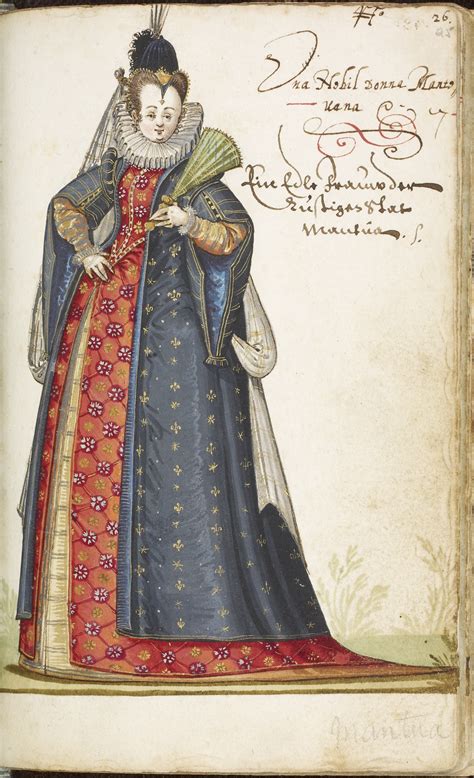 26.
Una Nobil Donna Manto
vana
Ein Edle Frauw der
Lustigen Stat
Mantua. S.
Mantua